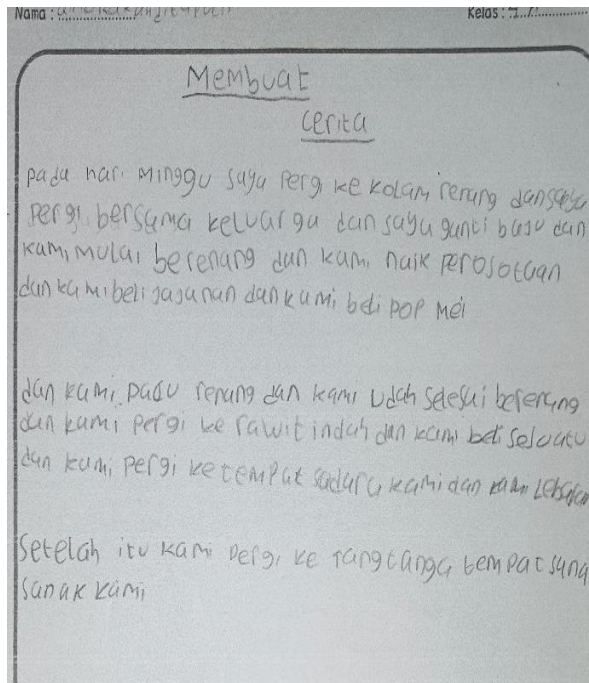 Nama :
Kelas :
Membuat
Cerita
pada hari Minggu saya pergi ke kolam renang dan saya
pergi bersama keluarga dan saya ganti baju dan
kami mulai berenang dan kami naik perosotaan
dan kami beli jajanan dan kami beli pop mei
dan kami padu renang dan kami udah selesai berenang
dan kami pergi ke rawit indah dan kami beli seluatu
dan kami pergi ke tempat sadara kami dan kami
setelah itu kami pergi ke tangtanga tempat sana
sanak kami